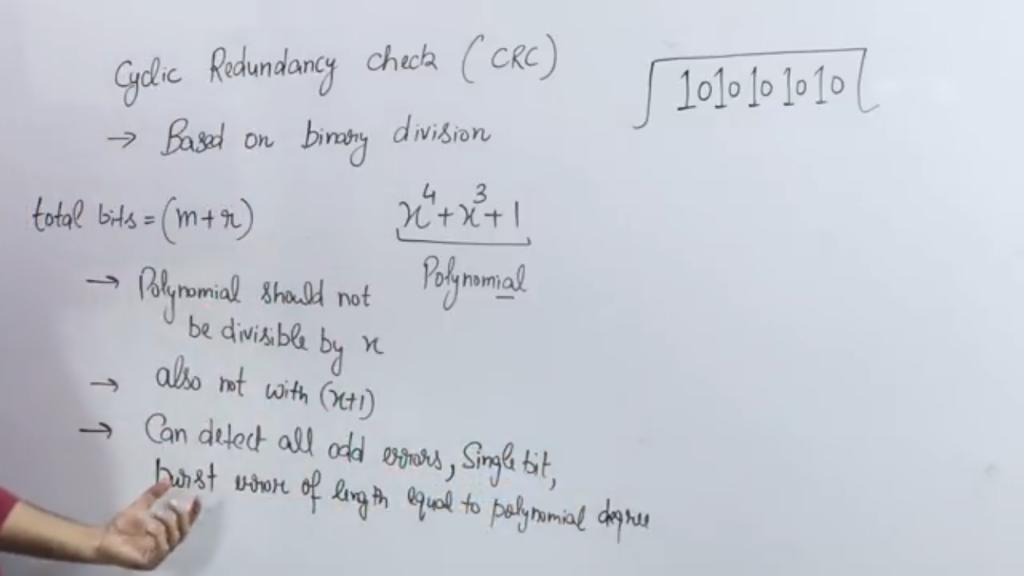 Cyclic Redundancy check (CRC)
1010101010
→ Based on binary division
total bits = (m+r)
x⁴+x³+1
Polynomial
→ Polynomial should not
be divisible by x
→ also not with (x+1)
→ Can detect all odd errors, Single bit,
burst error of length equal to polynomial degree